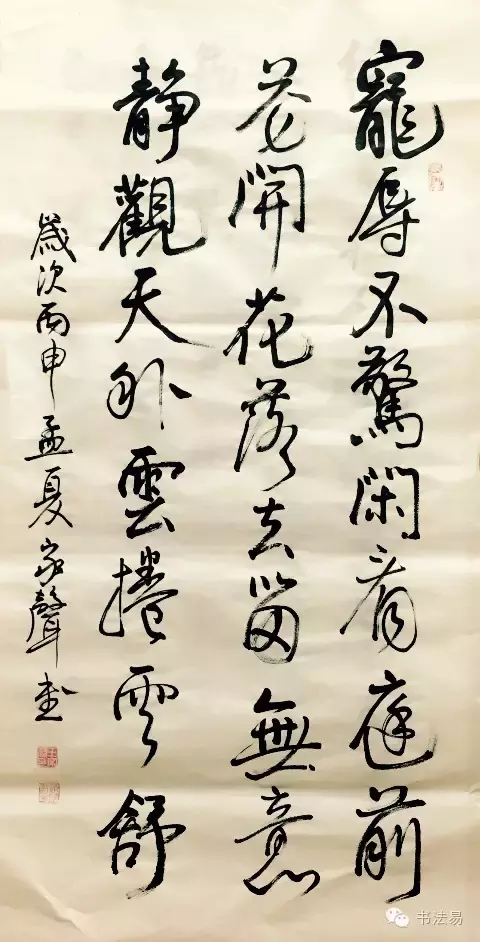 寵辱不驚閑看庭前
花開花落去留無意
靜觀天外雲捲雲舒
歲次丙申孟夏家聲書
书法易